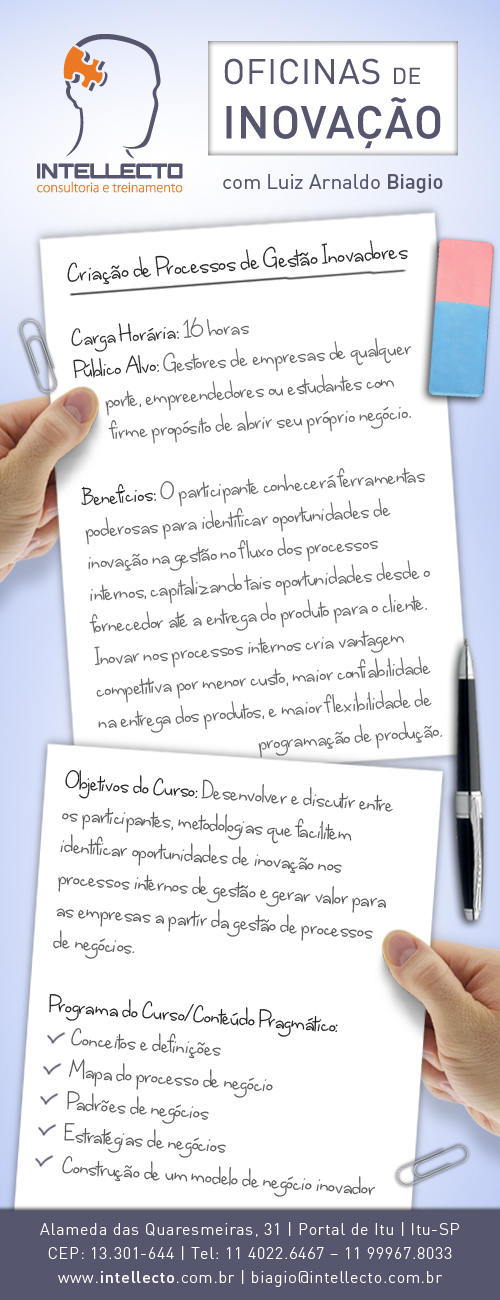 INTELLECTO
consultoria e treinamento
OFICINAS DE
INOVAÇÃO
com Luiz Arnaldo Biagio
Criação de Processos de Gestão Inovadores
Carga Horária: 16 horas
Público Alvo: Gestores de empresas de qualquer
porte, empreendedores ou estudantes com
firme propósito de abrir seu próprio negócio.
Benefícios: O participante conhecerá ferramentas
poderosas para identificar oportunidades de
inovação na gestão no fluxo dos processos
internos, capitalizando tais oportunidades desde o
fornecedor até a entrega do produto para o cliente.
Inovar nos processos internos cria vantagem
competitiva por menor custo, maior confiabilidade
na entrega dos produtos, e maior flexibilidade de
programação de produção.
Objetivos do Curso: Desenvolver e discutir entre
os participantes, metodologias que facilitem
identificar oportunidades de inovação nos
processos internos de gestão e gerar valor para
as empresas a partir da gestão de processos
de negócios.
Programa do Curso/Conteúdo Pragmático:
Conceitos e definições
Mapa do processo de negócio
Padrões de negócios
Estratégias de negócios
Construção de um modelo de negócio inovador
Alameda das Quaresmeiras, 31 | Portal de Itu | Itu-SP
CEP: 13.301-644 | Tel: 11 4022.6467 – 11 99967.8033
www.intellecto.com.br | biagio@intellecto.com.br